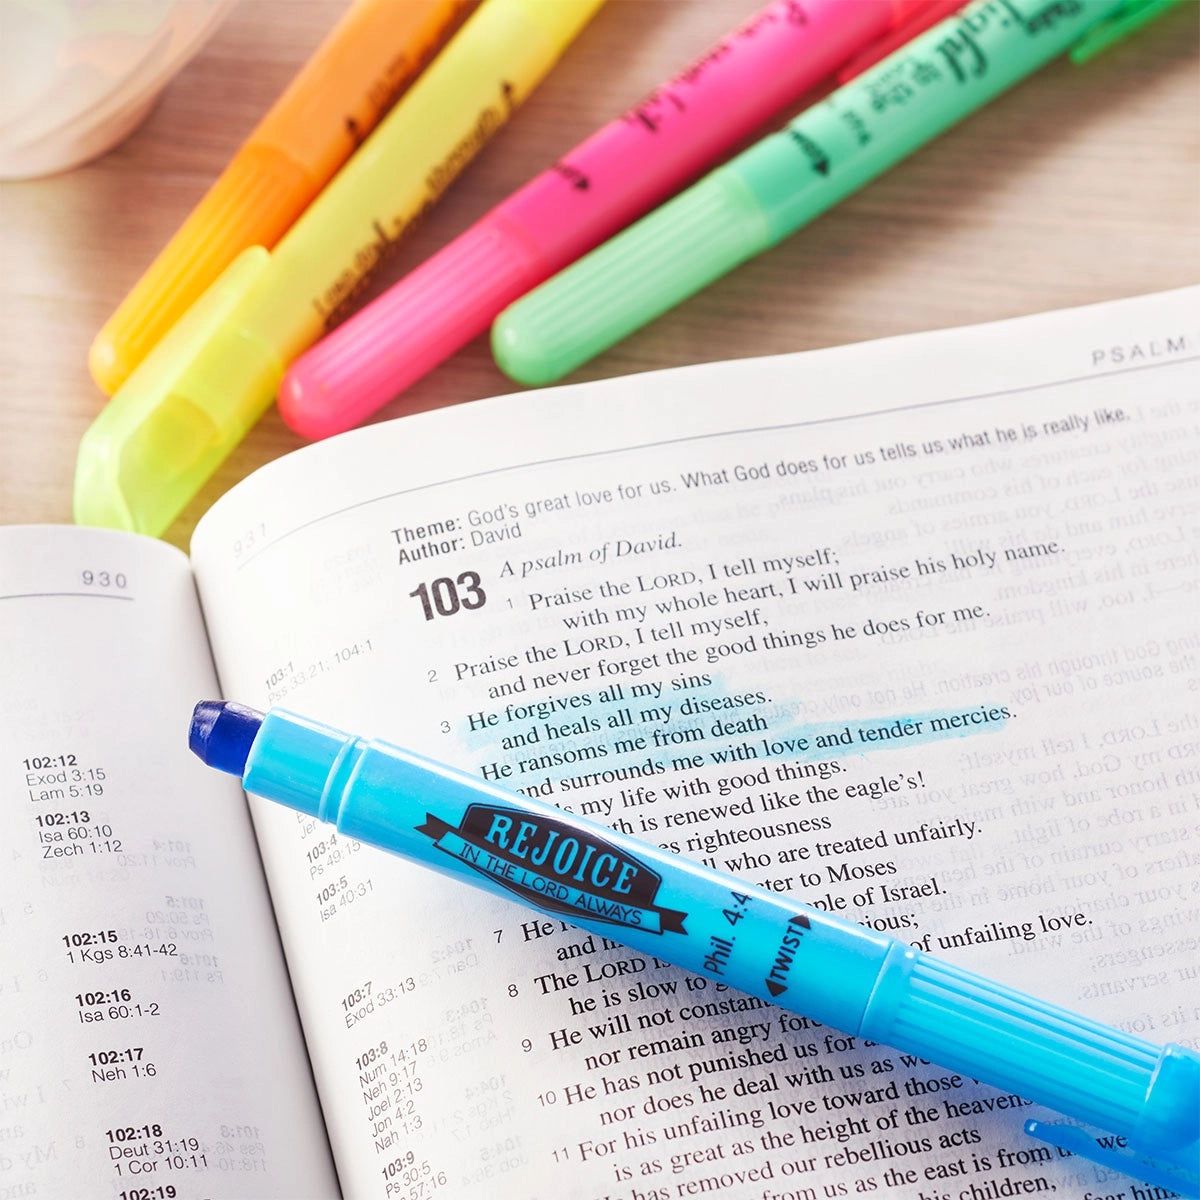 Light
to the
PSALM
931
Theme: God's great love for us. What God does for us tells us what he is really like.
Author: David
103
A psalm of David.
1 Praise the LORD, I tell myself;
with my whole heart, I will praise his holy name.
2 Praise the LORD, I tell myself,
and never forget the good things he does for me.
3 He forgives all my sins
and heals all my diseases.
He ransoms me from death
and surrounds me with love and tender mercies.
my life with good things.
is renewed like the eagle's!
righteousness
who are treated unfairly.
to Moses
of Israel.
7 He
and
of unfailing love.
8 The LORD is
he is slow to
9 He will not constant
nor remain angry
10 He has not punished us for
nor does he deal with us as
11 For his unfailing love toward those
is as great as the height of the heavens
has removed our rebellious acts
from us as the east is from
we
his children,
him
103:1
Pss 33:21; 104:1
103:4
Ps 49:15
103:5
Isa 40:31
103:7
Exod 33:13
103:8
Num 14:18
Neh 9:17
Joel 2:13
Jon 4:2
Nah 1:3
103:9
Ps 30:5
57:16
930
102:12
Exod 3:15
Lam 5:19
102:13
Isa 60:10
Zech 1:12
102:15
1 Kgs 8:41-42
102:16
Isa 60:1-2
102:17
Neh 1:6
102:18
Deut 31:19
1 Cor 10:11
102:19
REJOICE
IN THE LORD ALWAYS
Phil. 4:4
TWIST